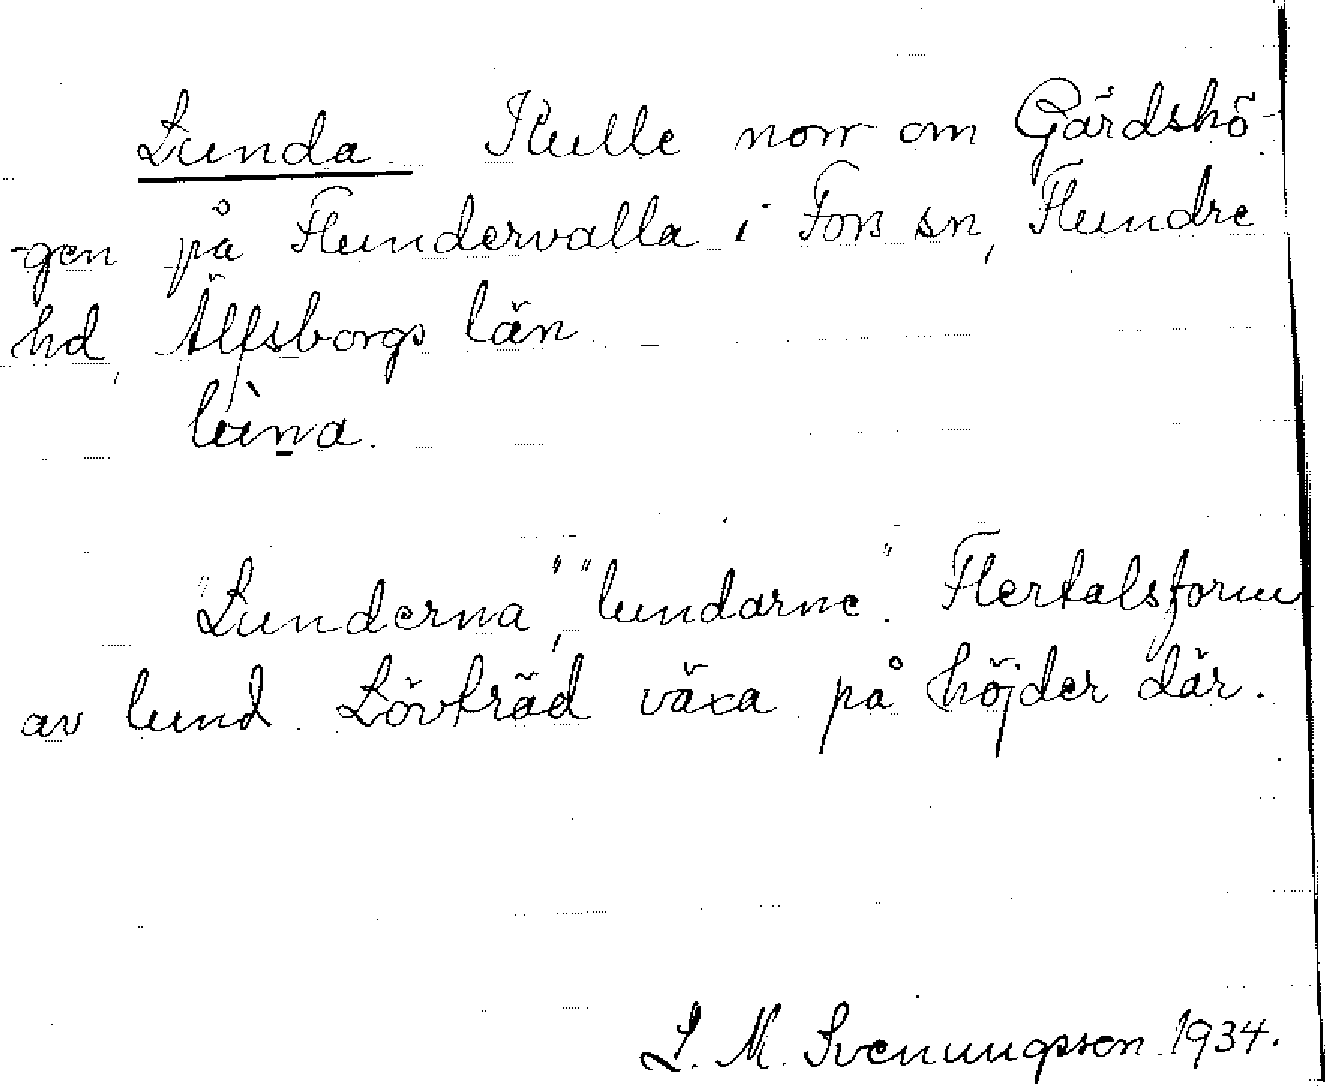 Lunda Kulle norr om Gärdshö-
gen på Flundervalla i Fors sn, Flundre
hd, Älfsborgs län
lùna.
"Lunderna", "lundarne". Flertalsform
av lund. Lövträd växa på höjder där.
L. M. Svenungsson 1934.